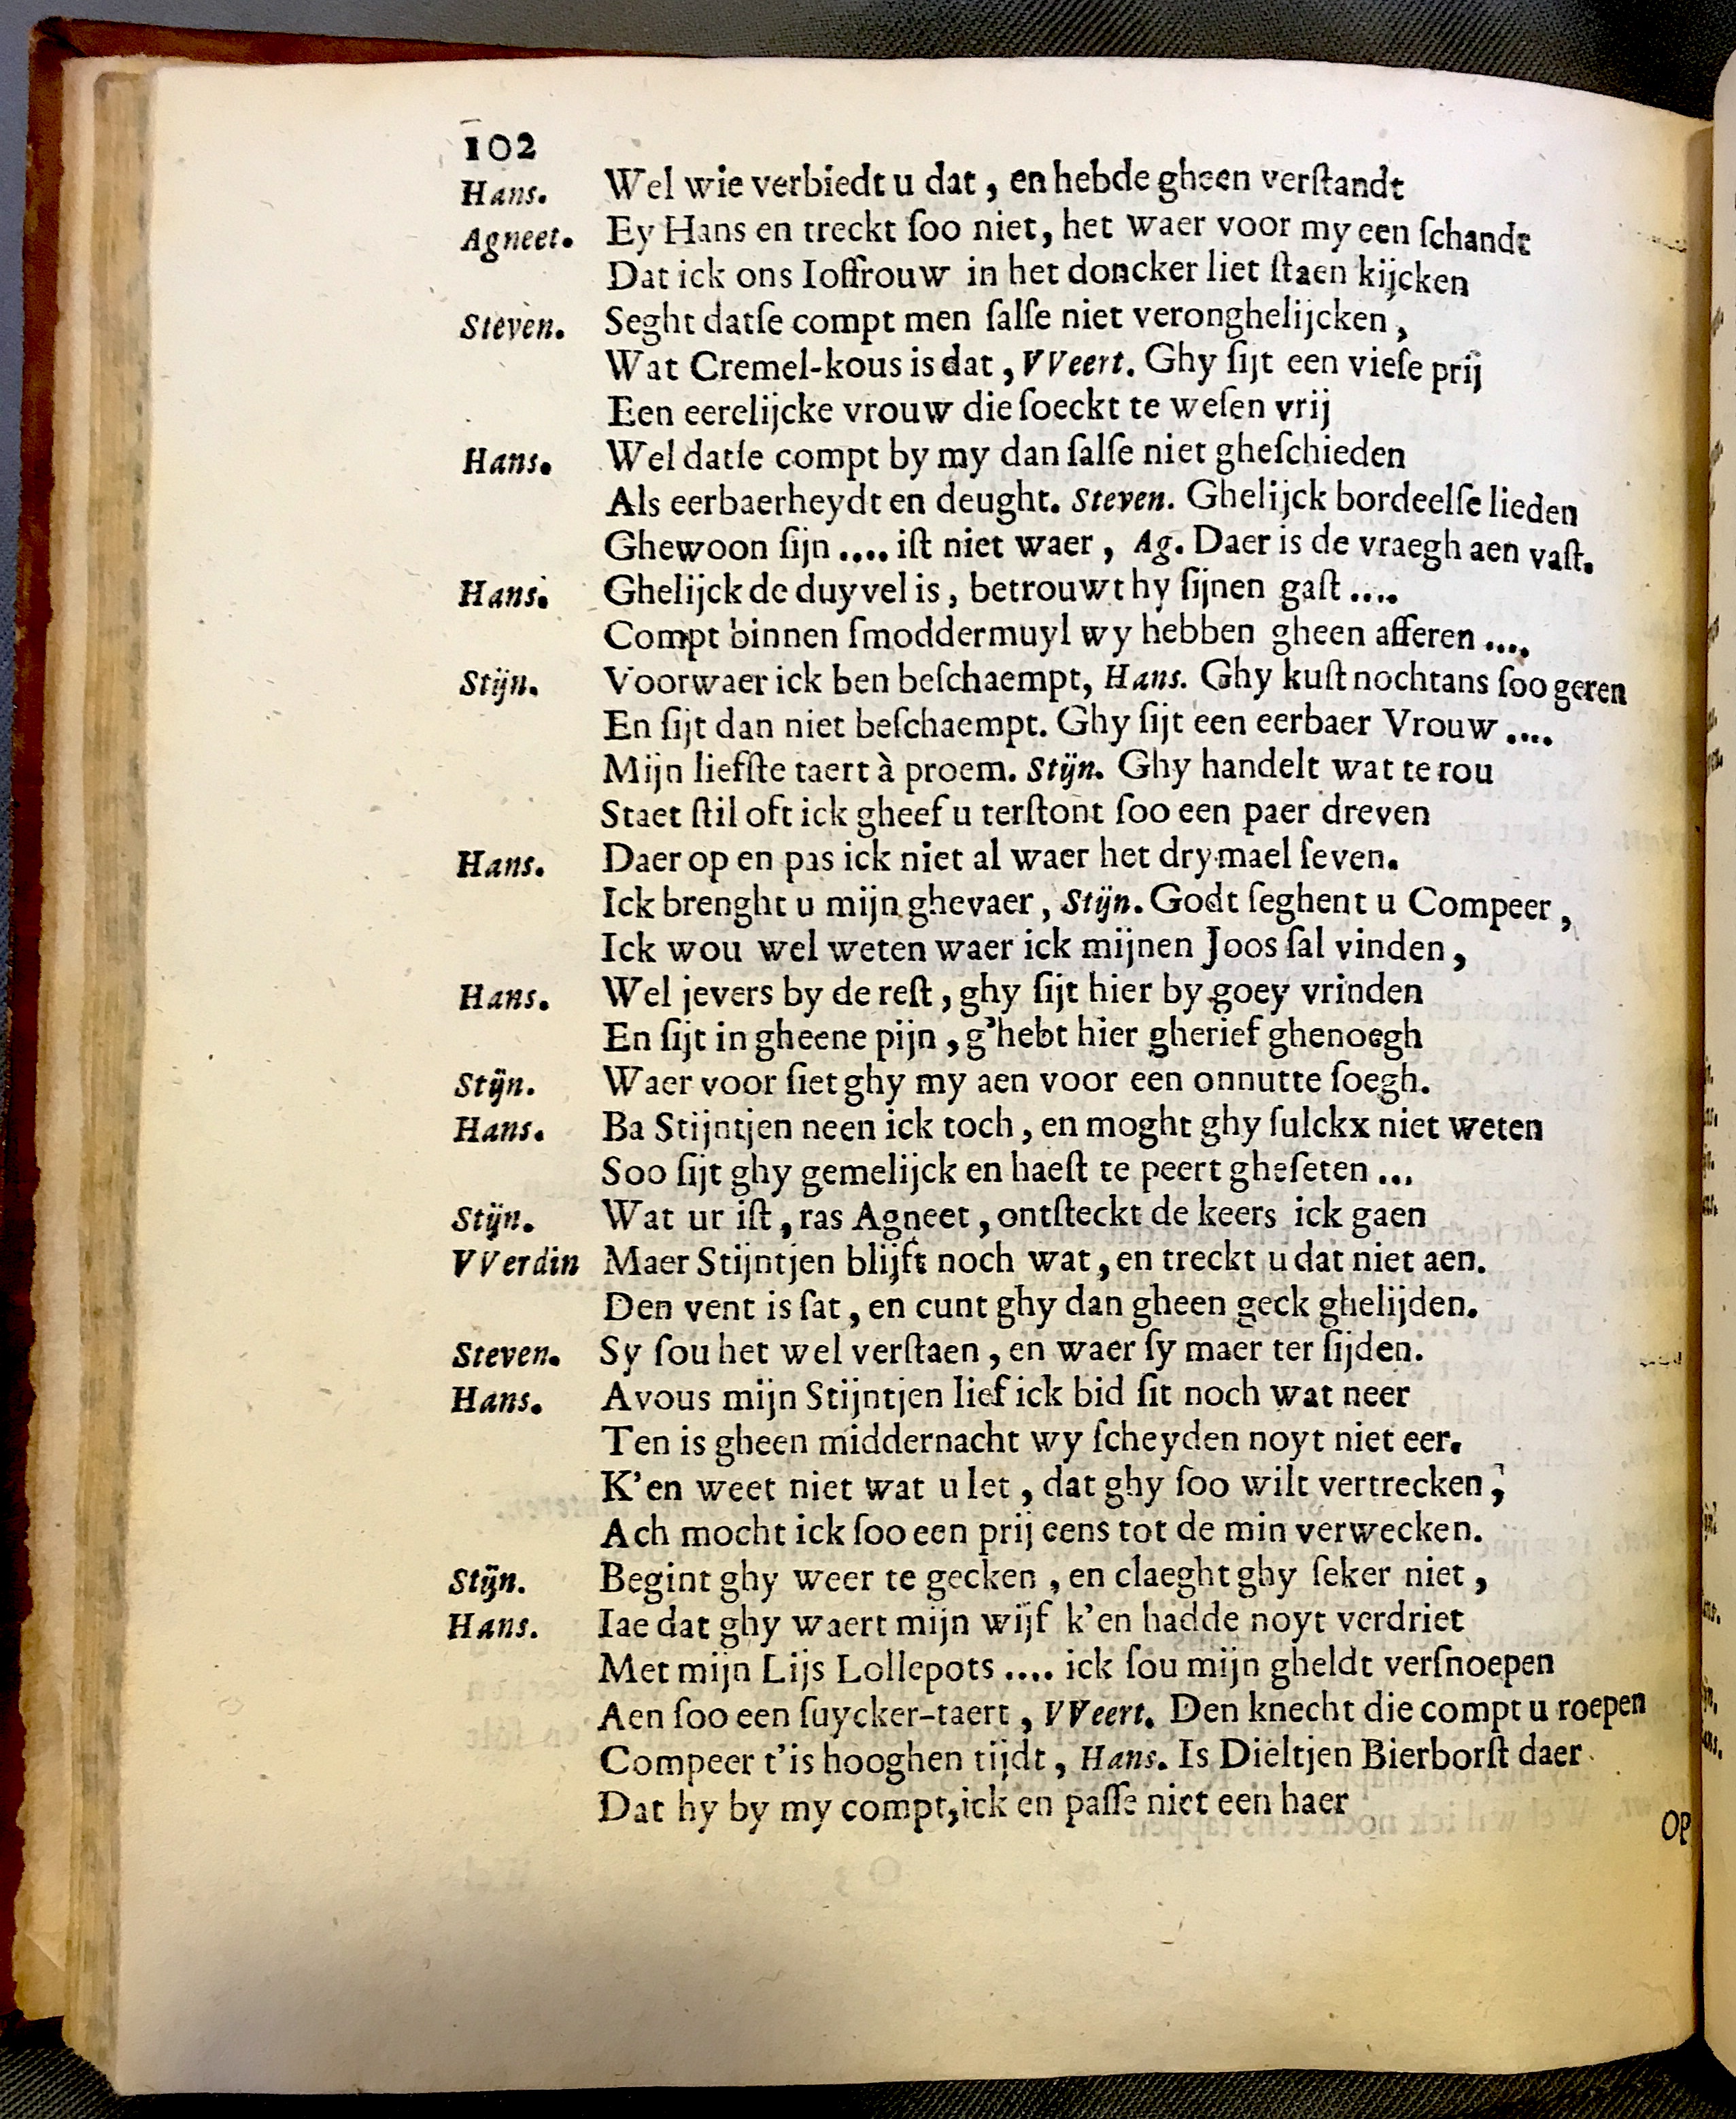 102
Hans. Wel wie verbiedt u dat, en hebde gheen verſtandt
Agneet. Ey Hans en treckt ſoo niet, het waer voor my een ſchandt
Dat ick ons Ioffrouw in het doncker liet ſtaen kijcken
Steven. Seght datſe compt men ſalſe niet veronghelijcken,
Wat Cremel-kous is dat, VVeert. Ghy ſijt een vieſe prij
Een eerelijcke vrouw die ſoeckt te weſen vrij
Hans. Wel datſe compt by my dan ſalſe niet gheſchieden
Als eerbaerheydt en deught. Steven. Ghelijck bordeelſe lieden
Ghewoon ſijn .... iſt niet waer, Ag. Daer is de vraegh aen vaſt.
Hans. Ghelijck de duyvel is, betrouwt hy ſijnen gaſt ....
Compt binnen ſmoddermuyl wy hebben gheen afferen ....
Stijn. Voorwaer ick ben beſchaempt, Hans. Ghy kuſt nochtans ſoo geren
En ſijt dan niet beſchaempt. Ghy ſijt een eerbaer Vrouw ....
Mijn liefſte taert à proem. Stijn. Ghy handelt wat te rou
Staet ſtil oft ick gheef u terſtont ſoo een paer dreven
Hans. Daer op en pas ick niet al waer het dry mael ſeven.
Ick brenght u mijn ghevaer, Stijn. Godt ſeghent u Compeer,
Ick wou wel weten waer ick mijnen Joos ſal vinden,
Hans. Wel jevers by de reſt, ghy ſijt hier by goey vrinden
En ſijt in gheene pijn, g'hebt hier gherief ghenoegh
Stijn. Waer voor ſiet ghy my aen voor een onnutte ſoegh.
Hans. Ba Stijntjen neen ick toch, en moght ghy ſulckx niet weten
Soo ſijt ghy gemelijck en haeſt te peert gheſeten ...
Stijn. Wat ur iſt, ras Agneet, ontſteckt de keers ick gaen
VVerdin Maer Stijntjen blijft noch wat, en treckt u dat niet aen.
Den vent is ſat, en cunt ghy dan gheen geck ghelijden.
Steven. Sy ſou het wel verſtaen, en waer ſy maer ter ſijden.
Hans. Avous mijn Stijntjen lief ick bid ſit noch wat neer
Ten is gheen middernacht wy ſcheyden noyt niet eer.
K'en weet niet wat u let, dat ghy ſoo wilt vertrecken,
Ach mocht ick ſoo een prij eens tot de min verwecken.
Stijn. Begint ghy weer te gecken, en claeght ghy ſeker niet,
Hans. Iae dat ghy waert mijn wijf k'en hadde noyt verdriet
Met mijn Lijs Lollepots .... ick ſou mijn gheldt verſnoepen
Aen ſoo een ſuycker-taert, VVeert. Den knecht die compt u roepen
Compeer t'is hooghen tijdt, Hans. Is Dieltjen Bierborſt daer
Dat hy by my compt, ick en paſſe niet een haer
OP